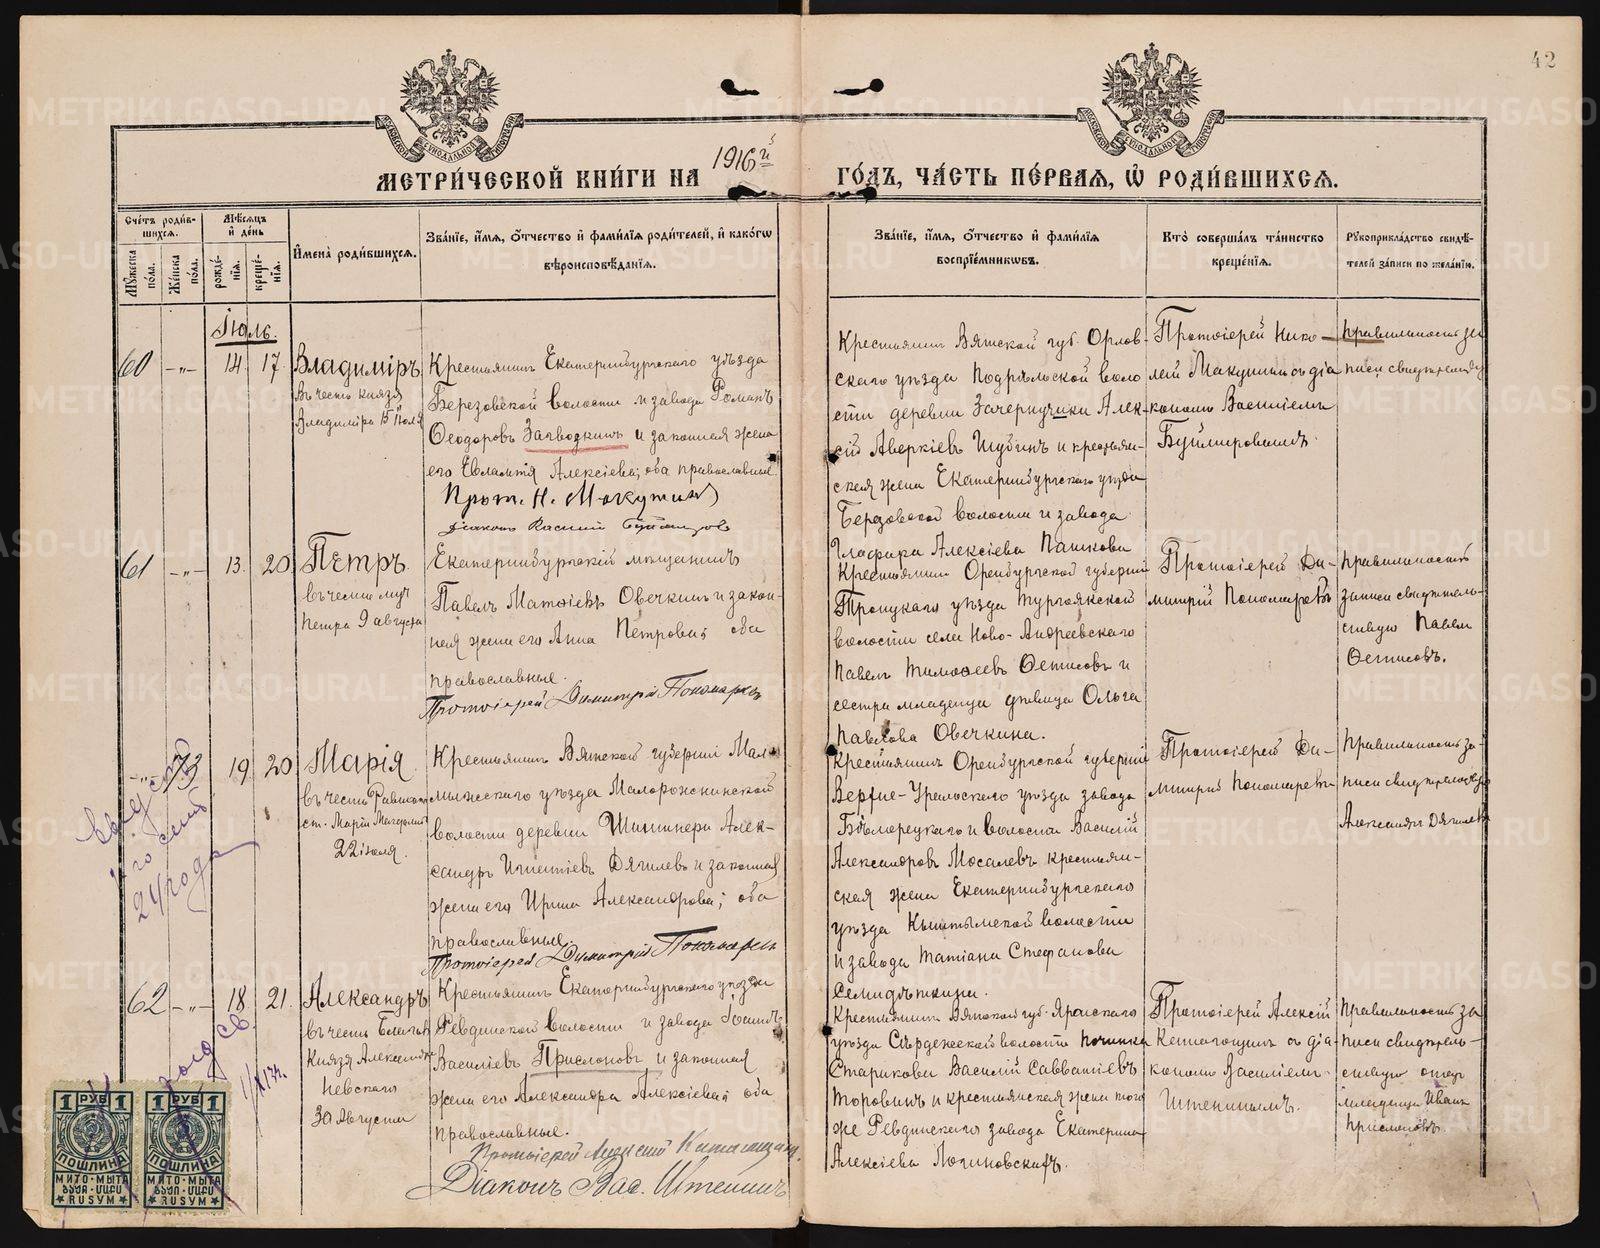 42
МЕТРИ́ЧЕСКОЙ КНИ́ГИ НА 1916й ГО́ДЪ, ЧА́СТЬ ПЕ́РВАЯ, Ѡ РОДИ́ВШИХСЯ.
Сче́тъ роди́в-
шихся.
Мѣ́сяцъ
и҆ де́нь
Мꙋ́жеска по́ла.
Же́нска по́ла.
рожде́-
нїѧ.
креще́-
нїѧ.
И҆мена̀ роди́вшихсѧ.
Зва́нїе, и҆́мѧ, ѻ҆́тчество и҆ фами́лїѧ роди́телей, и҆ како́гѡ
вѣроисповѣ́данїѧ.
Зва́нїе, и҆́мѧ, ѻ҆́тчество и҆ фами́лїѧ
воспрїе́мникѡвъ.
Кто̀ соверша́лъ та́инство
креще́нїѧ.
Рꙋкоприкла́дство свидѣ́-
телей за́писи по жела́нїю.
Іюль.
60 -„- 14 17
Владиміръ
въ честь князя
Владиміра 15 Іюля
Крестьянинъ Екатеринбургскаго уѣзда
Березовской волости и завода Романъ
Ѳеодоровъ Загводкинъ и законная жена
его Евлампія Алексіева; оба православные
Прот. Н. Мокушинъ
Крестьянинъ Вятской губ. Орлов-
скаго уѣзда Подрѣльской воло
сти деревни Алек-
сій Аверкіевъ Шубинъ и крестьян-
ская жена Екатеринбургскаго уѣзда
Березовской волости и завода
Глафира Алексіева Пашкова
Протоіерей Нико-
лай Макушинъ съ діа
кономъ Василіемъ
Буймировымъ.
правильность за
писи свидѣтельству
61 -„- 13. 20.
Петръ.
въ честь муч
Петра 9 августа
Екатеринбургскій мѣщанинъ
Павелъ Матѳіевъ Овечкинъ и закон-
ная жена его Анна Петрова; оба
православные.
Протоіерей Димитрій Пономаревъ
Крестьянинъ Оренбургской губерніи
Троицкаго уѣзда Тургоякской
волости села Ново-Андреевскаго
Павелъ Тимоѳеевъ Ѳетисовъ и
сестра младенца дѣвица Ольга
Павлова Овечкина.
Протоіерей Ди-
митрій Пономаревъ
правильность
записи свидѣтель-
ствую Павелъ
Ѳетисовъ.
-„- 73 19 20
Марія
въ честь Равноап
ст. Маріи Магдалины
22 іюля.
Крестьянинъ Вятской губерніи Мал-
мыжскаго уѣзда Малорожкинской
волости деревни Алек-
сандръ Игнатіевъ Дягилевъ и законная
жена его Ирина Александрова; оба
православные.
Протоіерей Димитрій Пономаревъ
Крестьянинъ Оренбургской губерніи
Верхне-Уральскаго уѣзда завода
Бѣлорецкаго и волости Василій
Александровъ Мосалевъ крестьян-
ская жена Екатеринбургскаго
уѣзда Кыштымской волости
и завода Татіана Стефанова
Семидѣткина.
Протоіерей Ди-
митрій Пономаревъ
Правильность за-
писи свидѣтельствую
Александръ Дягилевъ
24 года
62 -„- 18 21.
Александръ
въ честь Благов
Князя Александра
Невскаго
30 Августа
Крестьянинъ Екатеринбургскаго уѣзда
Ревдинской волости и завода Іоаннъ
Василіевъ Прислоновъ и законная
жена его Александра Алексіева; оба
православные.
Протоіерей Алексій
Діаконъ Вас. Штенинъ
Крестьянинъ Вятской губ. Яранскаго
уѣзда Сердежской волости починка
Старикова Василій Савватіевъ
Торовинъ и крестьянская жена того
же Ревдинскаго завода Екатерина
Алексіева Логиновскихъ.
Протоіерей Алексій
съ діа-
кономъ Василіемъ
Штенинымъ.
Правильность за
писи свидѣтель-
ствую отецъ
младенца Иванъ
Прислоновъ.
1 РУБ 1
ПОШЛИНА
МИТО · МЫТА
RUSUM
1 РУБ 1
ПОШЛИНА
МИТО · МЫТА
RUSUM
METRIKI.GASO-URAL.RU